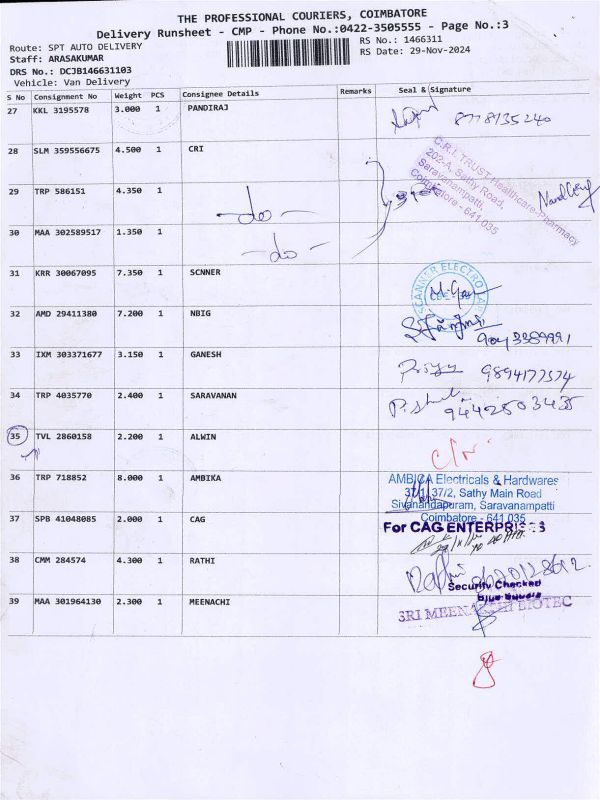 THE PROFESSIONAL COURIERS, COIMBATORE
Delivery Runsheet - CMP - Phone No.:0422-3505555 - Page No.:3
Route: SPT AUTO DELIVERY
RS No.: 1466311
Staff: ARASAKUMAR
RS Date: 29-Nov-2024
DRS No.: DCJB146631103
Vehicle: Van Delivery
S No Consignment No Weight PCS Consignee Details Remarks Seal & Signature
27 KKL 3195578 3.000 1 PANDIRAJ
8778135240
28 SLM 359556675 4.500 1 CRI
C.R.I TRUST Healthcare-Pharmacy
202-A, Sathy Road,
Saravanampatti,
Coimbatore - 641 035
29 TRP 586151 4.350 1
-do-
30 MAA 302589517 1.350 1
-do-
31 KRR 30067095 7.350 1 SCNNER
SCANNER ELECTRO
32 AMD 29411380 7.200 1 NBIG
9043389991
33 IXM 303371677 3.150 1 GANESH
Priya 9894177574
34 TRP 4035770 2.400 1 SARAVANAN
9442503435
35 TVL 2860158 2.200 1 ALWIN
C/N
36 TRP 718852 8.000 1 AMBIKA
AMBICA Electricals & Hardwares
37/2, Sathy Main Road
Sivanandapuram, Saravanampatti
Coimbatore - 641 035
37 SPB 41048085 2.000 1 CAG
For CAG ENTERPRISES
38 CMM 284574 4.300 1 RATHI
Security Checked
39 MAA 301964130 2.300 1 MEENACHI
SRI MEENAKSHI BIOTEC